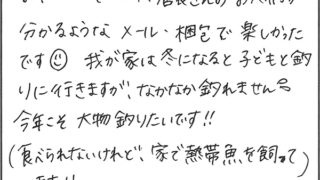 分かるような メール・梱包で 楽しかった
です☺ 我が家は冬になると 子どもと釣
りに行きますが、なかなか釣れません
今年こそ 大物釣りたいです!!
(食べられないけれど、家で熱帯魚を飼って)